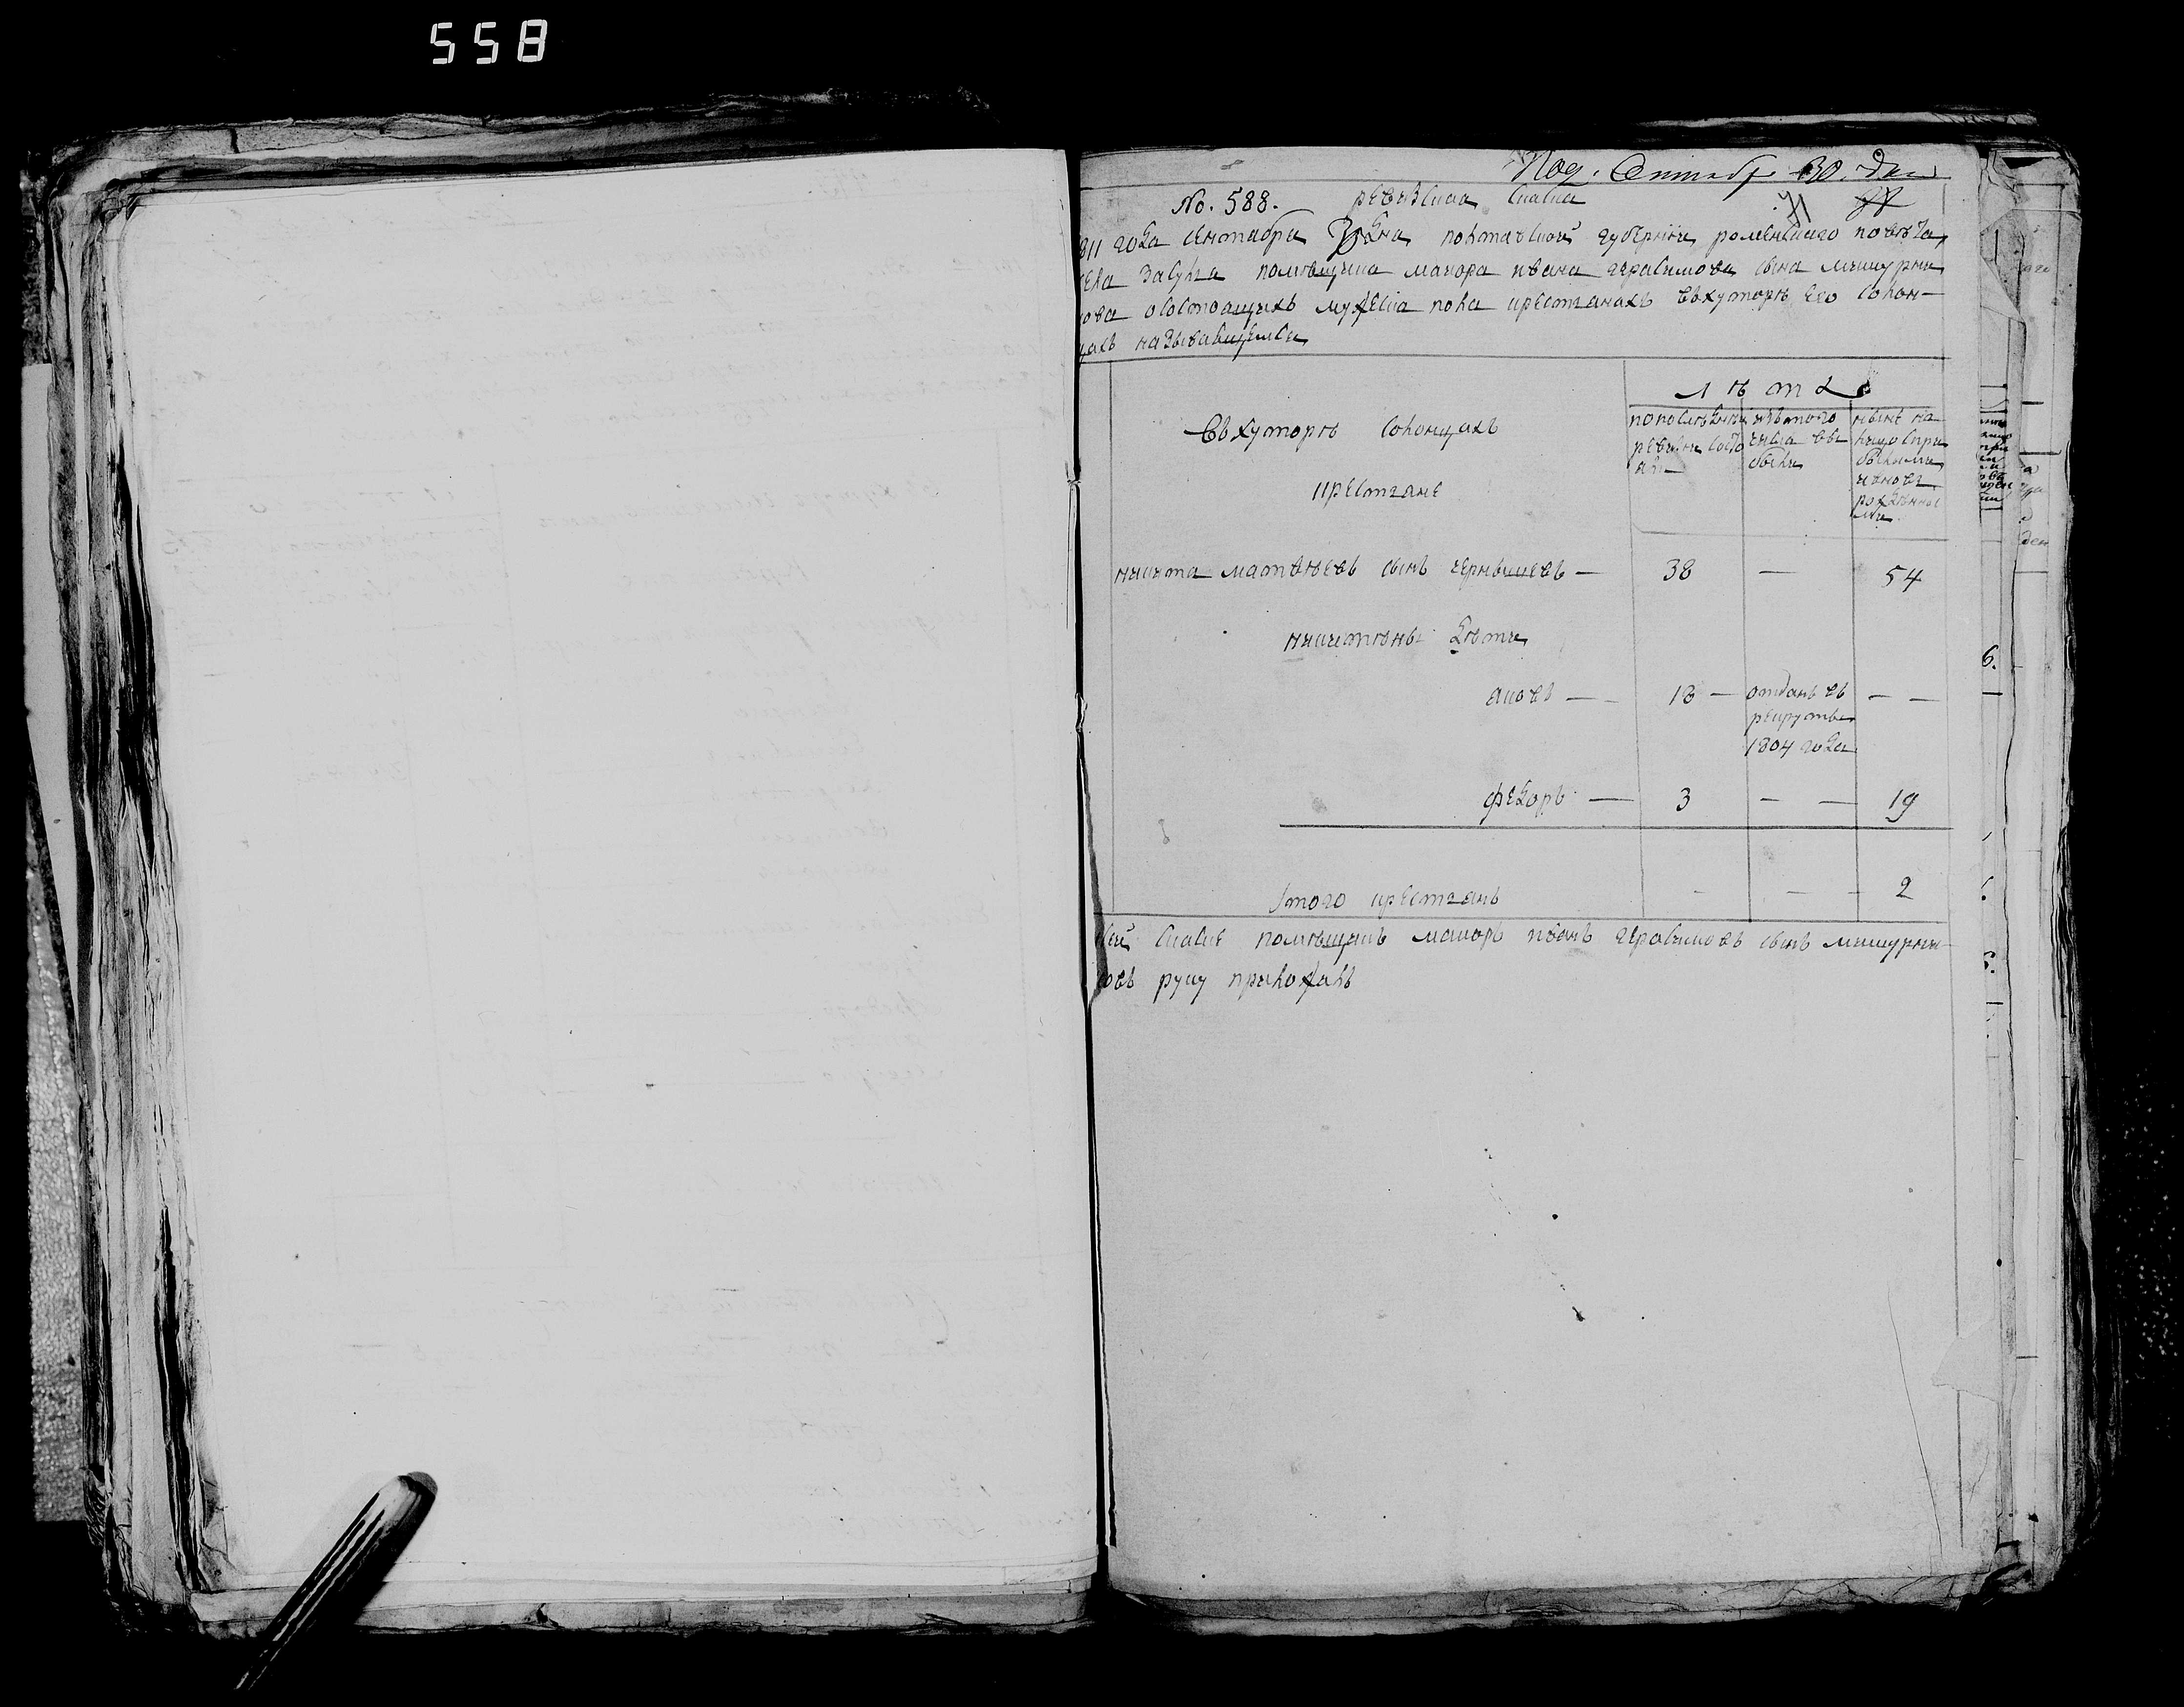 558
Под. Сентябр 30. дня
No. 588. ревизская скаска
71
811 года сентября дня полтавской губернии роменского повета
села засулья помещика маиора ивана герасимова сына мищурни
кова о состоящихъ мужеска пола крестянахъ вхуторе его солон
цахъ называющемся
Лѣта
вхуторѣ солонцахъ
крестяне
по последней ревизии состоялъ
изътого числа выбыли
ныне налицо спри былыми и новорожденными
никита матвѣевъ сынъ чернышевъ — 38 — 54
никитины дѣти
яковъ — 18 — отданъ въ — —
рекруты
1804 года
федоръ — 3 — — 19
Итого крестянъ - — 2
сей скаске помѣщикъ маиоръ иванъ герасимовъ сынъ мищурни
ковъ руку приложилъ